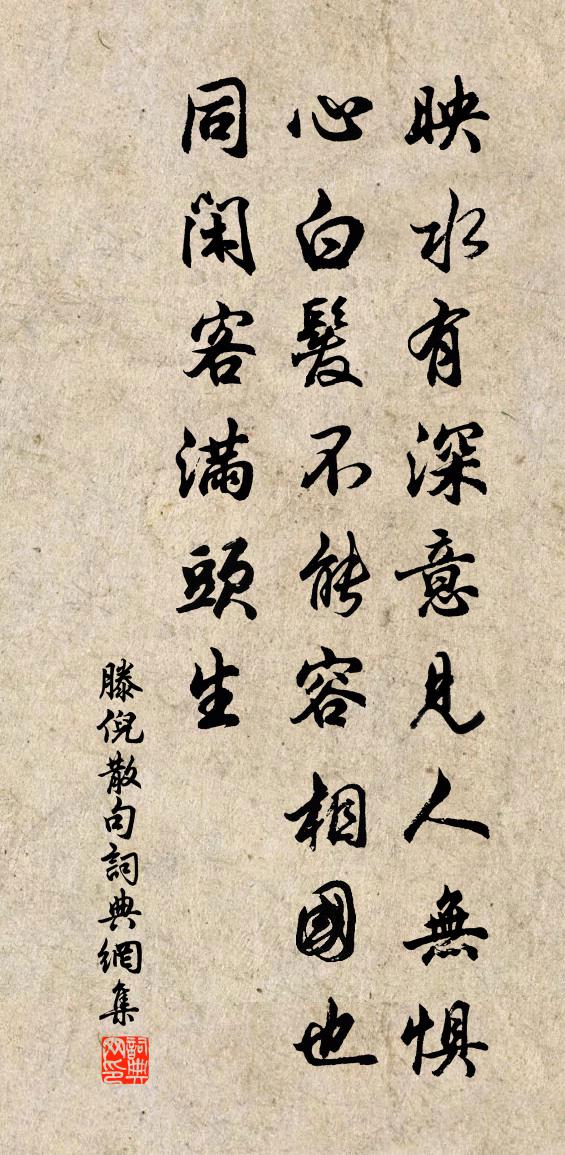 映水有深意見人無惧
心白髮不能容相國也
同閑客滿頭生
滕倪散句詞典網集
詞典網印